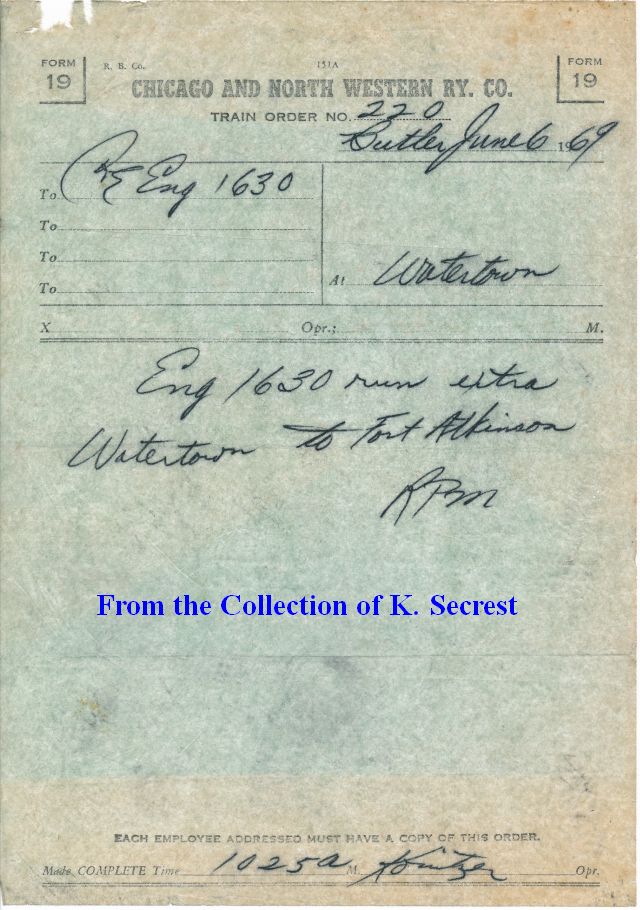 FORM 19
R. B. Co.
151A
FORM 19
CHICAGO AND NORTH WESTERN RY. CO.
TRAIN ORDER NO. 220
Butler June 6 1969
To Eng 1630
To
To
To
At Watertown
X Opr.; M.
Eng 1630 run extra
Watertown to Fort Atkinson
RPM
From the Collection of K. Secrest
EACH EMPLOYEE ADDRESSED MUST HAVE A COPY OF THIS ORDER.
Made COMPLETE Time 1025a M. Opr.